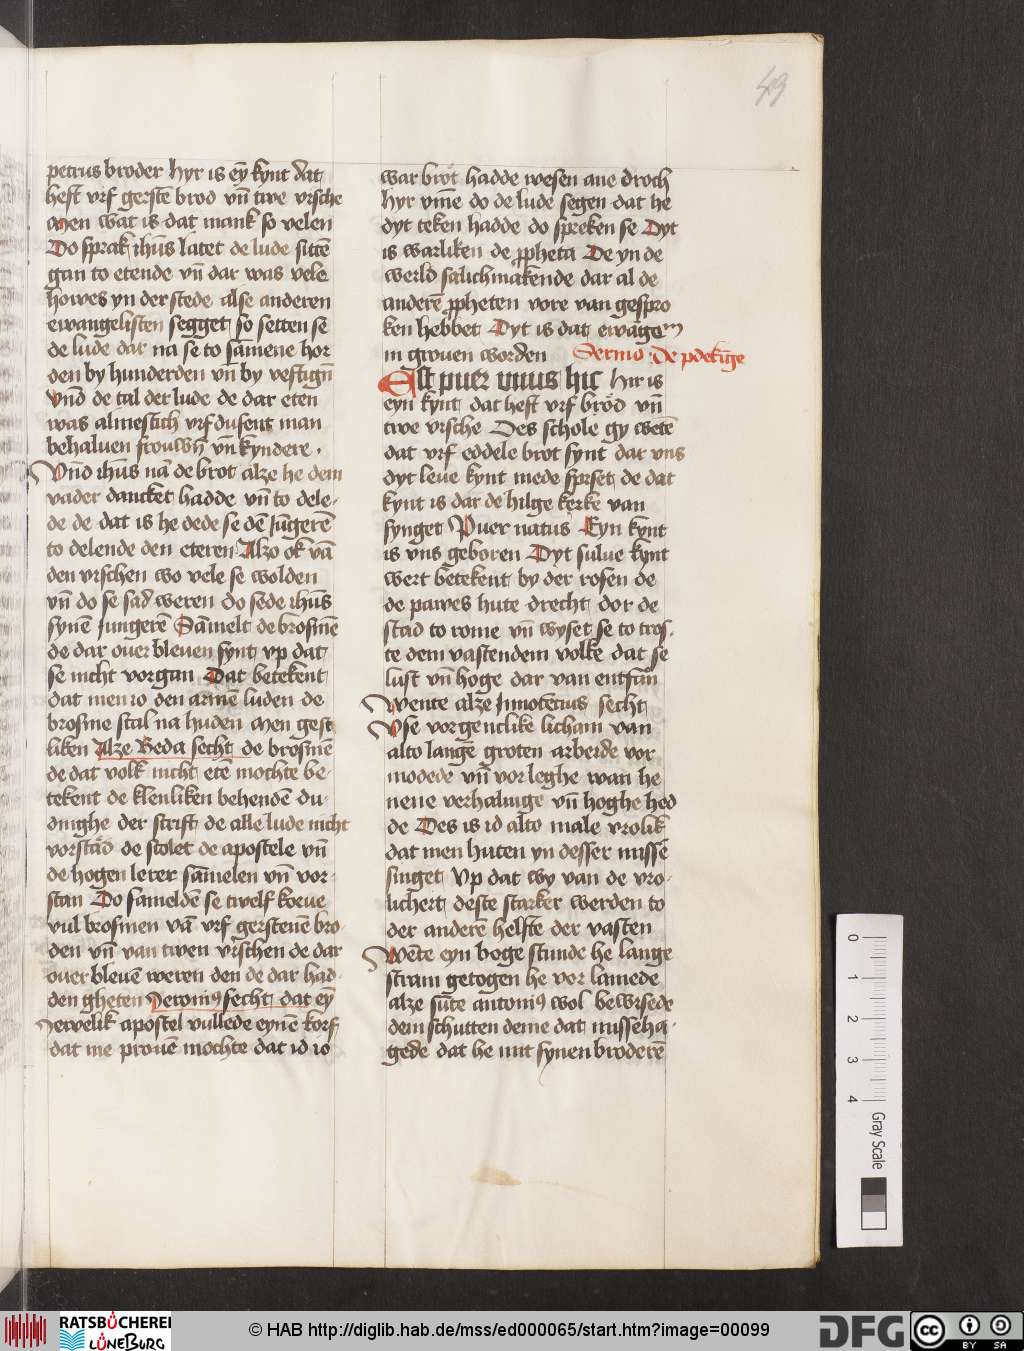 49
petrus broder hyr is ey̅ kynt dat
heft vyf gerste̅ brod vn̅ twe vyssche
Men wat is dat mank so velen
Do sprak ih̅us latet de lude sitte̅
gan to etende vn̅ dar was vele
howes yn der stede alse anderen
ewangelisten segget so setten se
de lude dar na se to sa̅mene hor
den by hunderden vn̅ by veftign̅
vn̅d de tal der lude de dar eten
was almestich vyf dusent man
behaluen frouwn̅ vn̅ kyndere .
Vn̅d ih̅us na̅ de brot alze he dem
vader dancket hadde vn̅ to dele-
de de dat is he dede se de̅ Jungere̅
to delende den eteren Alzo ok va̅
den vysschen wo vele se wolden
vn̅ do se sad weren do sede ih̅us
syne̅ jungere̅ Sa̅melt de brosme̅
de dar ouer bleuen synt vp dat
se nicht vorgan Dat betekent
dat men io den arme̅ luden de
brosme stal na huden Men gest
liken Alze Beda secht de brosme̅
de dat volk nicht ete̅ mochte be-
tekent de klenliken behende̅ du-
dnighe der scrift de alle lude nicht
vorstad de scolet de apostele vn̅
de hogen lerer sa̅melen vn̅ vor-
stan Do samelde̅ se twelf korue
vul brosmen va̅ vyf gerstene̅ bro-
den vn̅ van twen vysschen de dar
ouer bleue̅ weren den de dar had-
den gheten Jeroni9 secht dat ey̅
Jewelik apostel vullede eyne̅ korf
dat me proue̅ mochte dat id io
war brot hadde wesen ane droch
hyr vm̅e do de lude segen dat he
dyt teken hadde do spreken se Dyt
is warliken de ꝓpheta De yn de
werld salichmakende dar al de
andere̅ ꝓpheten vore van gespro
ken hebbet Dyt is dat ewa̅geᵐ
in grouen worden Sermo de p̅dekin̅ge
Est puer vnus hic Hir is
eyn kynt dat heft vyf brod vn̅
twe vyssche Des schole gy wete̅
dat vyf eddele brot synt dat vns
dyt leue kynt mede spyset de dat
kynt is dat de hilge kerke van
synget Puer natus Eyn kynt
is vns geboren Dyt sulue kynt
wert betekent by der rosen de
de pawes hute drecht dor de
stad to rome vn̅ wyset se to tros-
te dem vastendem volke dat se
lust vn̅ hoge dar van entfan̅
Wente alze Innocencius secht
Vse vorgenclike licham van
alto lange̅ groten arbeide vor
modede vn̅ vorleghe wan he
nene verhalinge vn̅ hoghe hed
de Des is id alto male vrolik
dat men huten yn desser misse
singet Vp dat wy van de vro-
licheit deste starker werden to
der andere̅ helfte der vasten
We̅te eyn boge stunde he lange
stram getogen he vor lamede
alze su̅te antoni9 wol bewysede
dem schutten deme dat misseha-
gede dat he mit synen brodere̅
0 1 2 3 4
Gray Scale
RATSBÜCHEREI
LÜNEBURG
© HAB http://diglib.hab.de/mss/ed000065/start.htm?image=00099
DFG
cc
BY SA